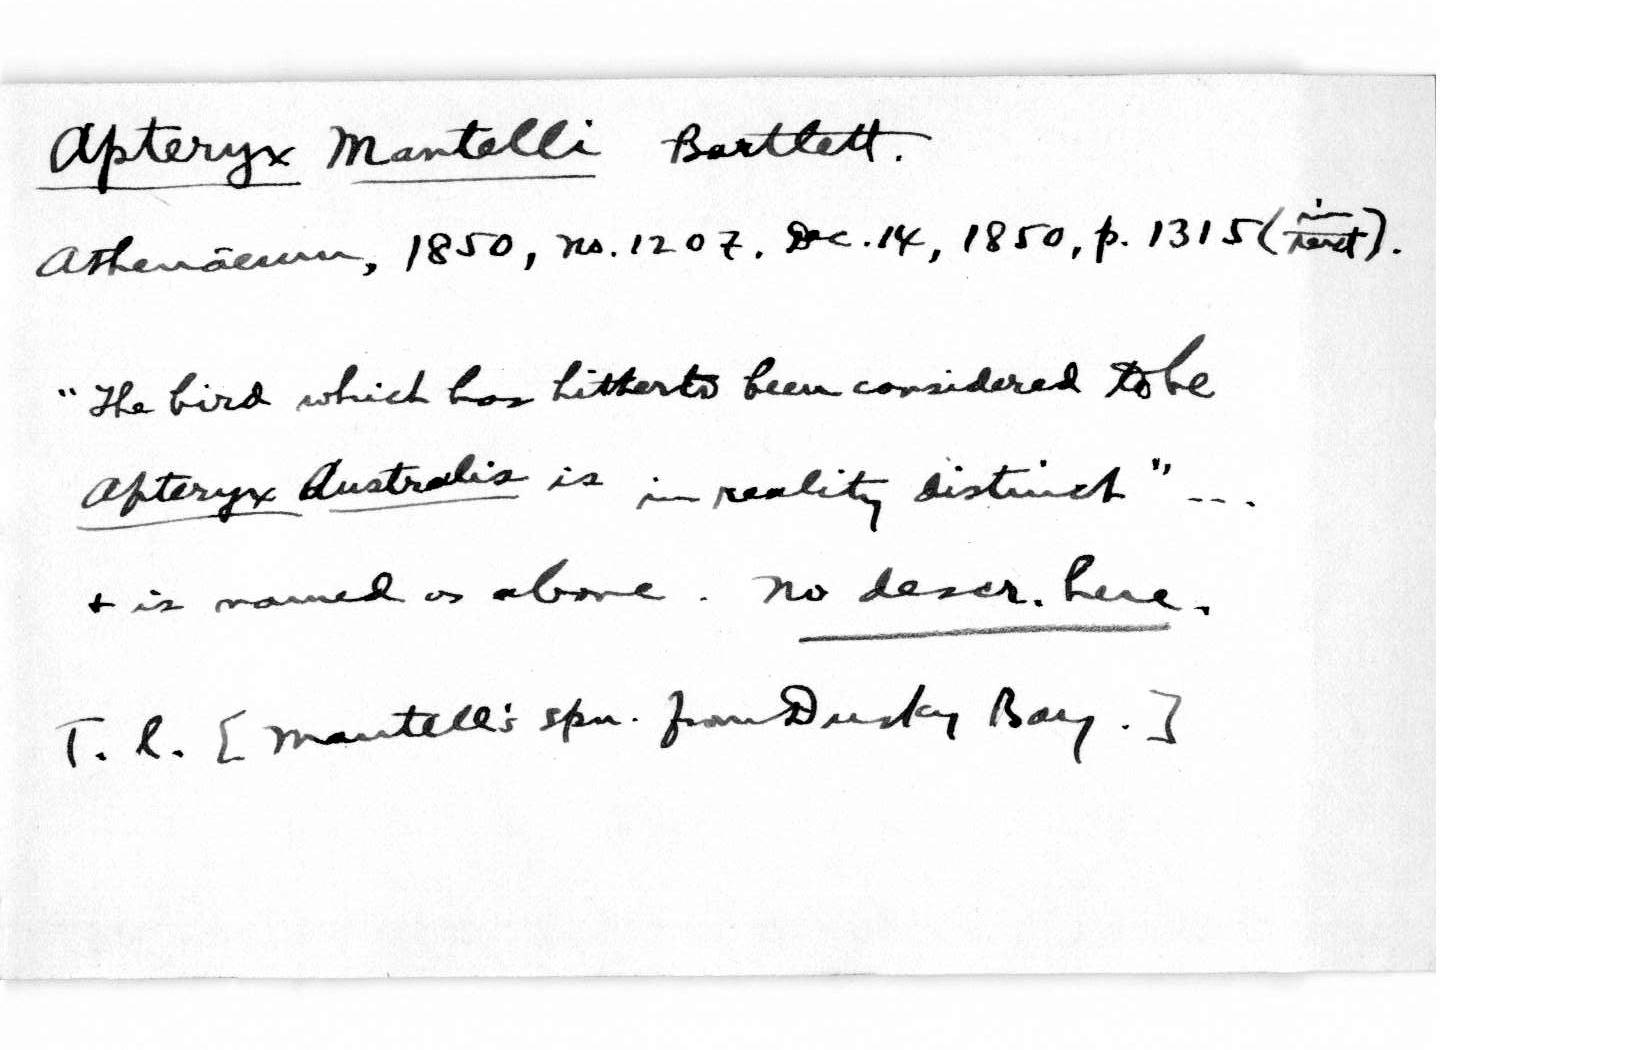 Apteryx Mantelli Bartlett.
Athenāeum, 1850, no. 1207. Dec. 14, 1850, p. 1315 (in text).
"The bird which has hitherto been considered to be
Apteryx Australis is in reality distinct" ...
+ is named as above. No descr. here.
T. l. [Mantell's spn. from Dusky Bay.]